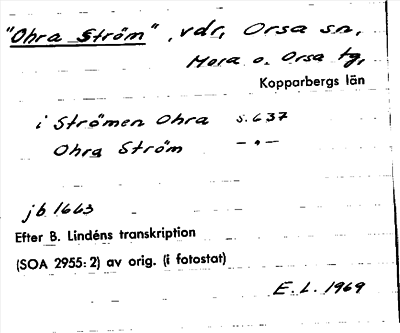 "Ohra Ström", vdr, Orsa sn,
Mora o. Orsa tg,
Kopparbergs län
i Strömen Ohra s. 637
Ohra Ström —"—
jb 1663
Efter B. Lindéns transkription
(SOA 2955:2) av orig. (i fotostat)
E.L. 1969